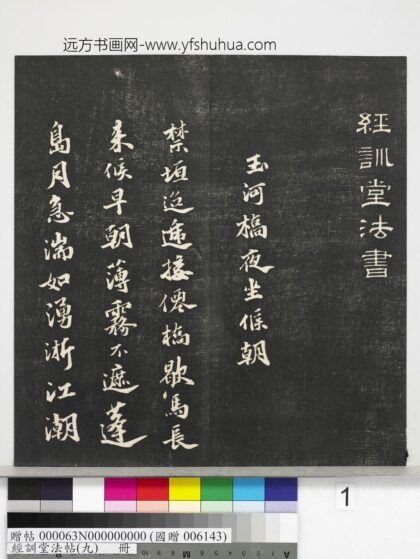 远方书画网-www.yfshuhua.com
經訓堂法書
玉河橋夜坐候朝
禁垣迢遞接僊橋歇馬長
來候早朝薄霧不遮蓬
島月急湍如湧浙江潮
1
贈帖 000063N000000000 (國贈 006143)
經訓堂法帖(九) 冊